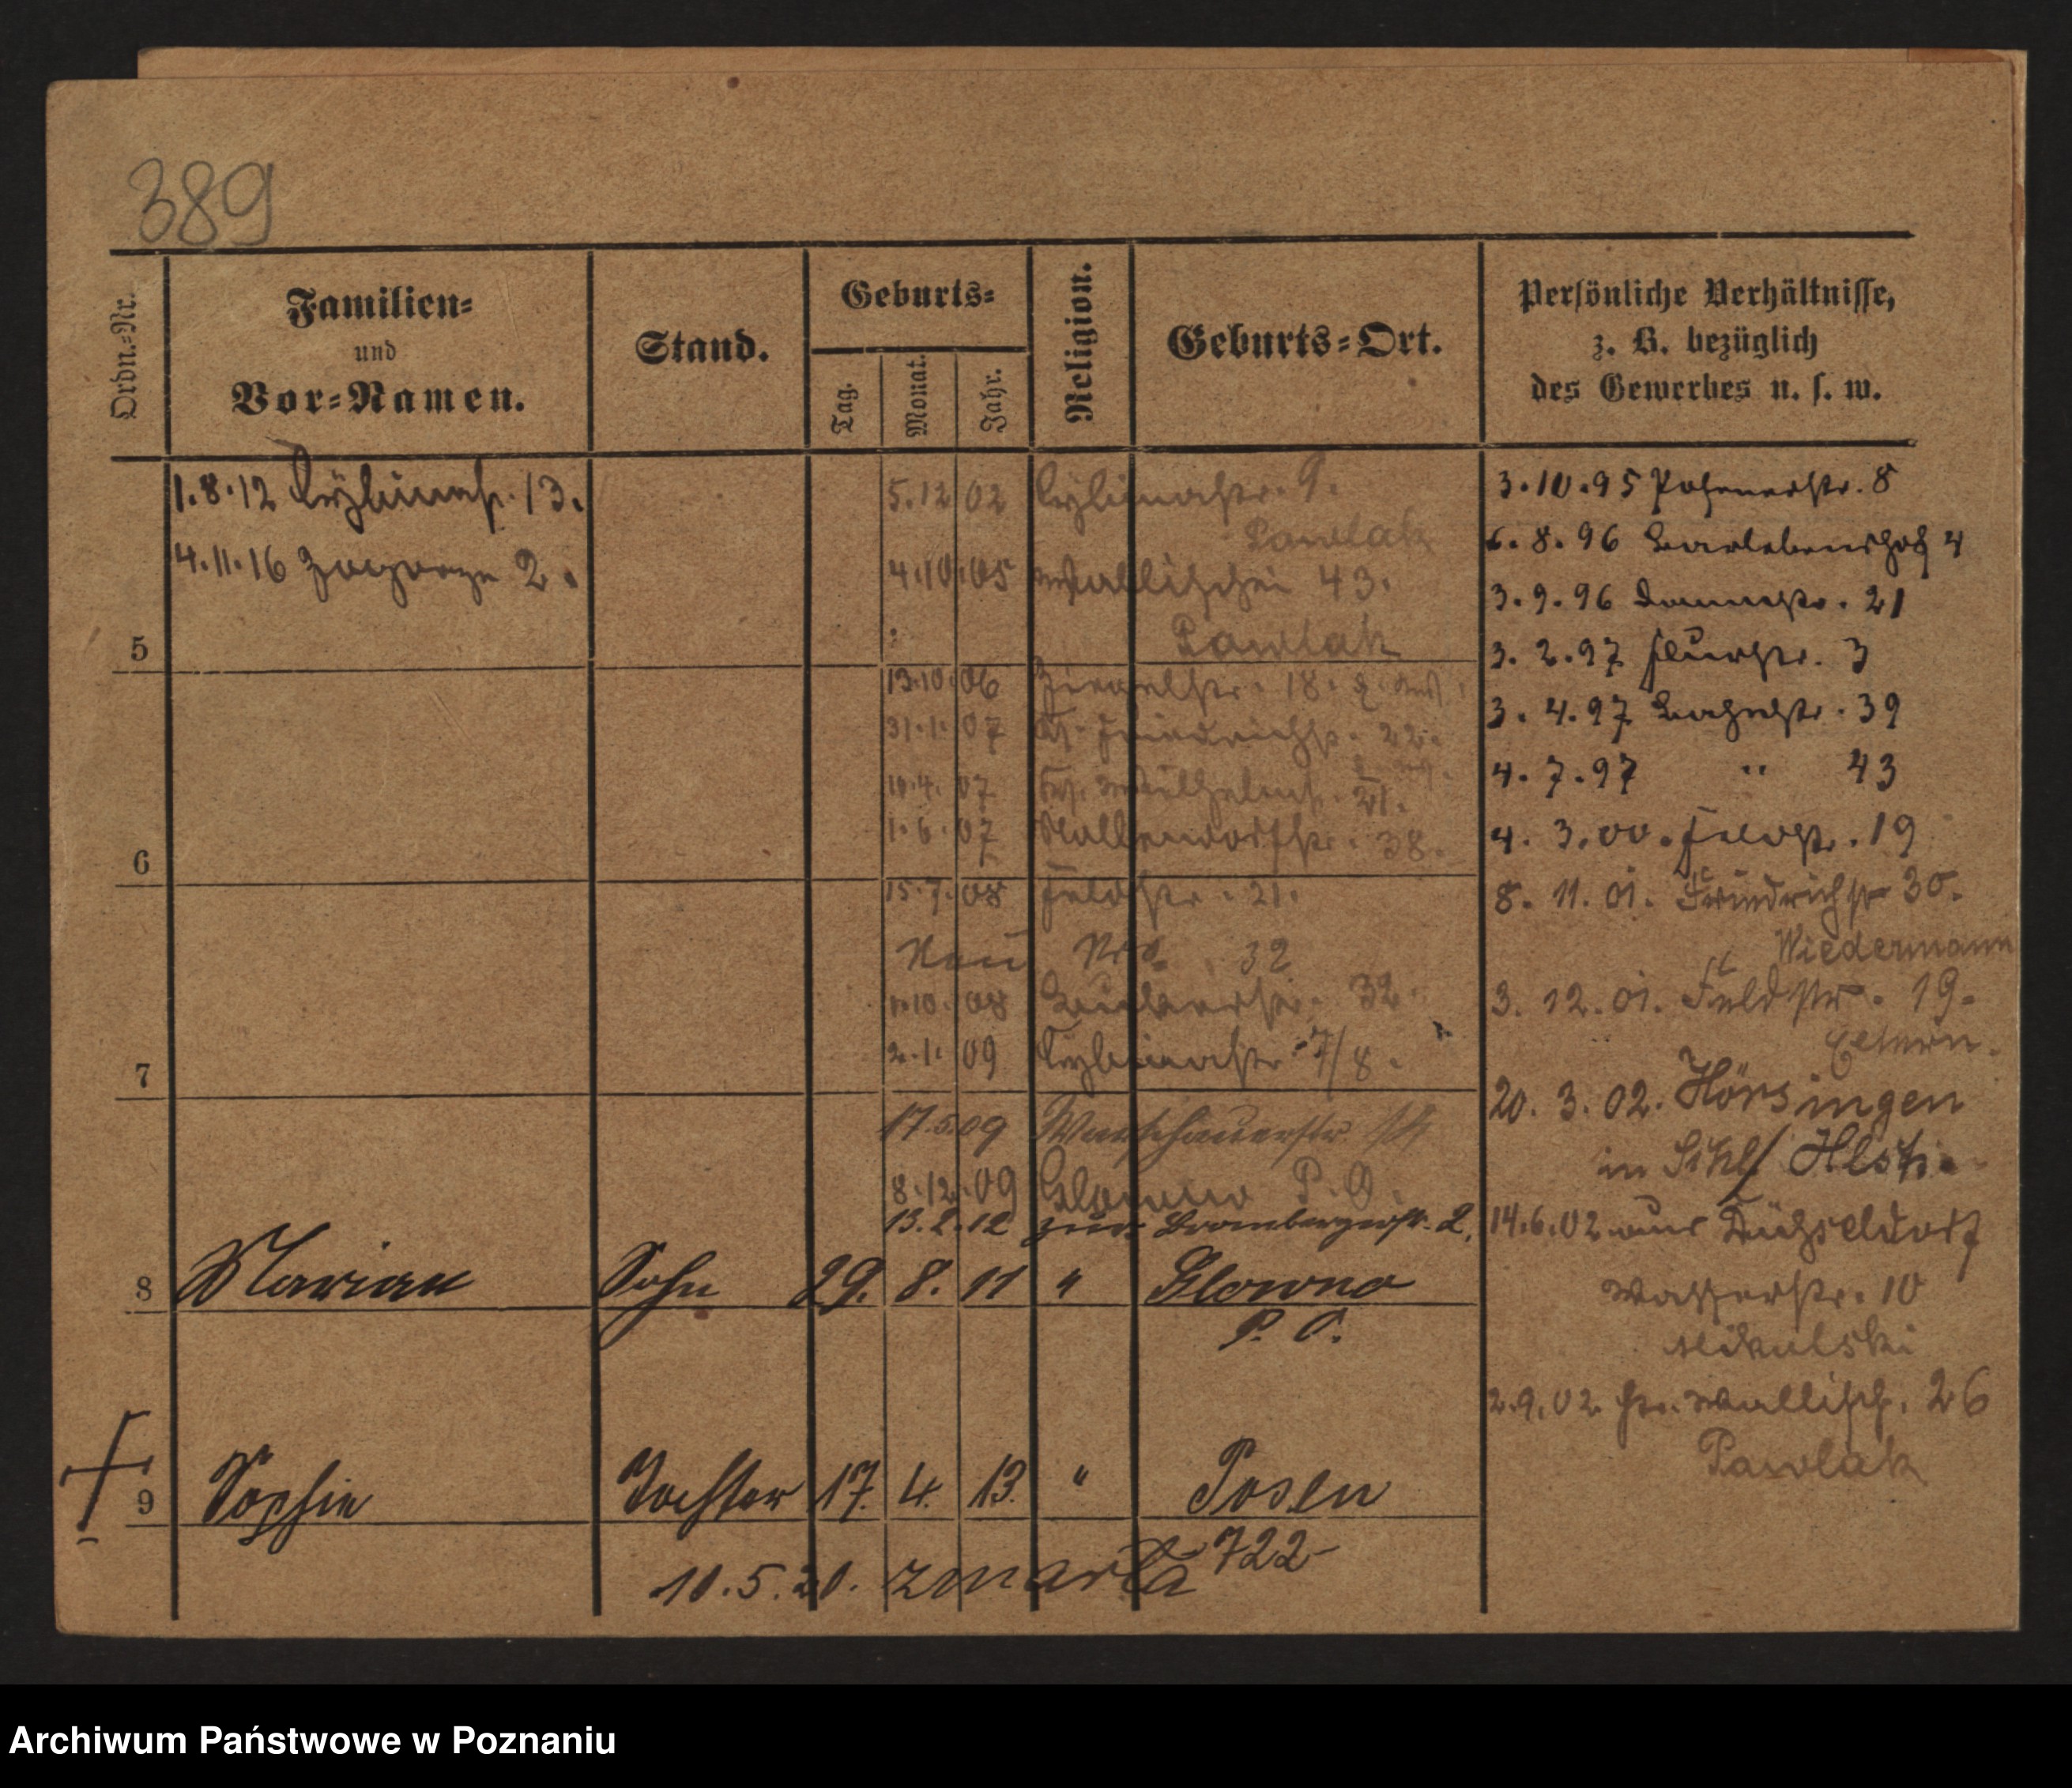 389
Ordn.-Nr.
Familien-
und
Vor-Namen.
Stand.
Geburts-
Tag.
Monat.
Jahr.
Religion.
Geburts-Ort.
Persönliche Verhältnisse,
z. B. bezüglich
des Gewerbes u. s. w.
1.8.12 Cybinastr. 13.
4.11.16 Zagorze 2.
5.12 02 Cybinastr. 9.
Pawlak
4.10.05 Wallischei 43.
Pawlak
13.10.06 Ziegelstr. 18.
31.1.07 Friedrichstr. 22.
10.4.07 Wilhelmstr. 21.
1.6.07 38.
15.7.08 Feldstr. 21.
Neu No 32
1.10.08 32.
2.1.09 Cybinastr. 7/8.
17.5.09 Warschauerstr.
8.12.09 Glowno P. O.
13.2.12 zur. Brombergerstr. 2.
3.10.95 Posenerstr. 8
6.8.96 Bartlebenshof 4
3.9.96 Dammstr. 21
3.2.97 Flurstr. 3
3.4.97 Bahnstr. 39
4.7.97 " 43
4.3.00. Feldstr. 19
8.11.01. Friedrichstr 30.
Wiedermann
3.12.01. Feldstr. 19.
Eltern.
20.3.02. Hörsingen
in Hlst.
14.6.02 aus Düsseldorf
Wasserstr. 10
Mikulski
2.9.02 Wallisch. 26
Pawlak
5
6
7
8 Marian Sohn 29. 8. 11 " Glowno
P. O.
9 Sophie Tochter 17. 4. 13. " Posen
722
10.5.20. zmarła
Archiwum Państwowe w Poznaniu